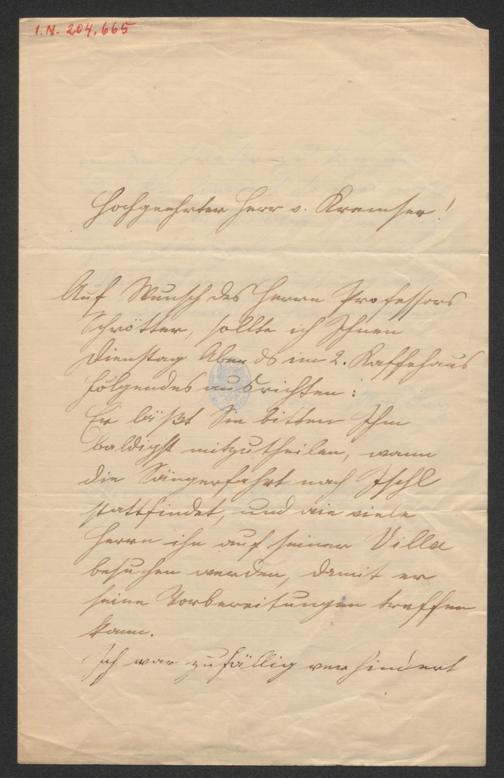 I.N. 204.665
Hochgeehrter Herr v. Kremser!
Auf Wunsch des Herrn Professors
Schrötter, sollte ich Ihnen
Dienstag Abends im 2. Kaffehaus
folgendes ausrichten:
Er läßt Sie bitten Ihm
baldigst mitzutheilen, wann
die Sängerfahrt nach Ischl
stattfindet, und wie viele
Herrn ihn auf seiner Villa
besuchen werden, damit er
seine Vorbereitungen treffen
kann.
Ich war zufällig verhindert